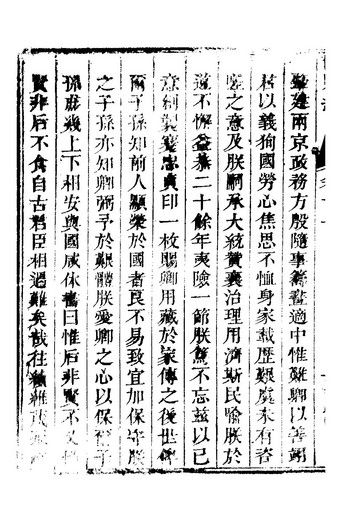 肇建兩京政務方殷隨事籌畫適中惟難卿以善翊
君以義徇國勞心焦思不恤身家茲歷艱虞未有咨
嗟之意及朕嗣承大統贊襄治理用濟斯民喻朕於
道不懈益恭二十餘年夷險一節朕篤不忘茲以已
意創製蹇忠貞印一枚賜卿用藏於家傳之後世俾
爾子孫知前人顯榮於國者良不易致宜加保守朕
之子孫亦知卿弼予於艱難朕愛卿之心以保卿子
孫庶幾上下相安與國咸休書曰惟后非賢不乂惟
賢非后不食自古君臣相遇難矣哉往績